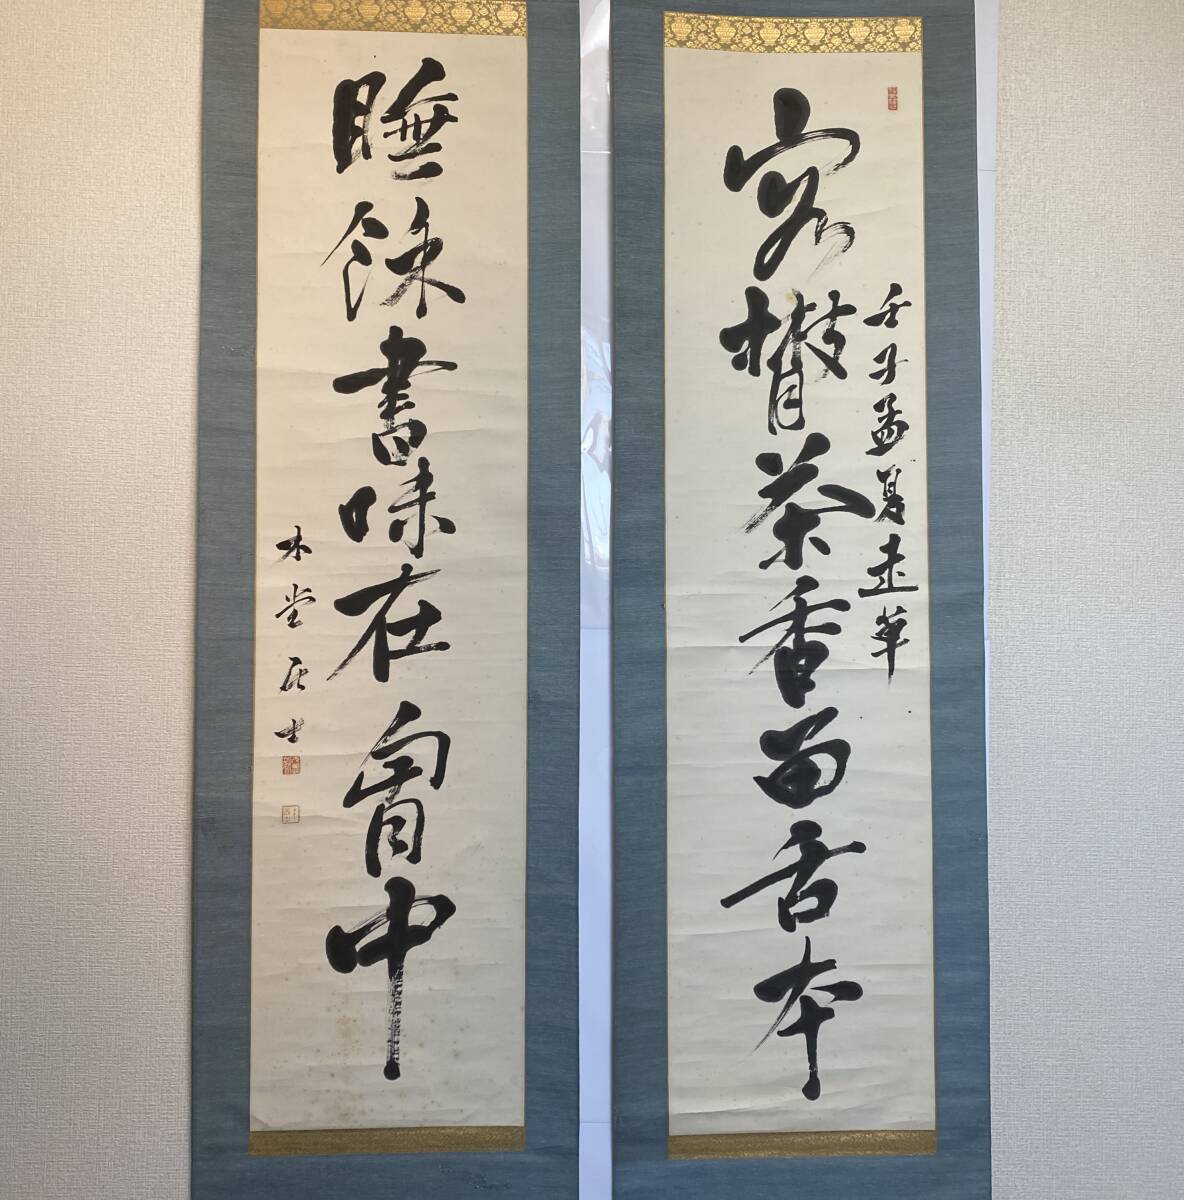 壬子孟夏走筆
客散茶香留舌本
睡餘書味在胷中
木堂居士